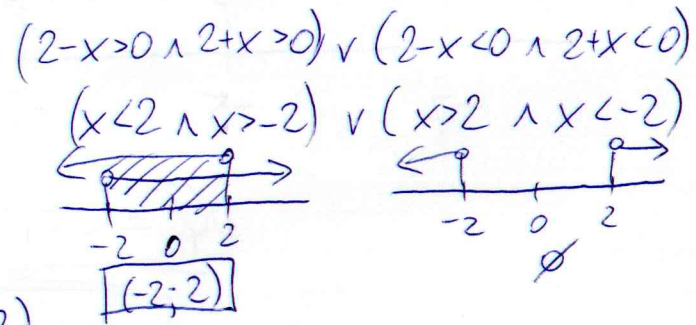 (2-x>0 ∧ 2+x>0) ∨ (2-x<0 ∧ 2+x<0)
(x<2 ∧ x>-2) ∨ (x>2 ∧ x<-2)
-2 0 2
-2 0 2
(-2;2)
∅